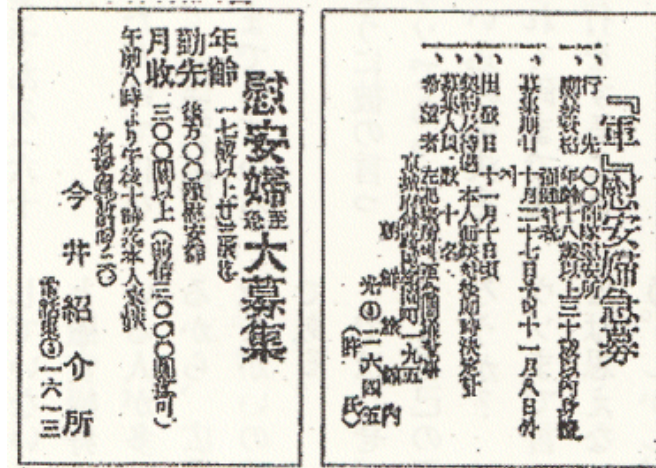 『軍』慰安婦急募
一、行先 〇〇部隊慰安所
一、應募資格 年齢十八歳以上三十歳以内身體強健者
一、募集期日 十月二十七日ヨリ十一月八日
一、出發日 十一月十日頃
一、契約及待遇 本人面談ノ後即時決定
一、募集人員 數十名
一、希望者 左記場所ニ至急
京城府鍾路區 町一九五
朝鮮旅館内
光③二六四五
(許氏)
慰安婦至急大募集
年齢 一七歳以上廿三歳
勤先 後方〇〇隊慰安部
月收 三〇〇圓以上(前借三〇〇〇圓迄可)
午前八時より午後十時本人來談
今井紹介所
電話東⑤一六一三